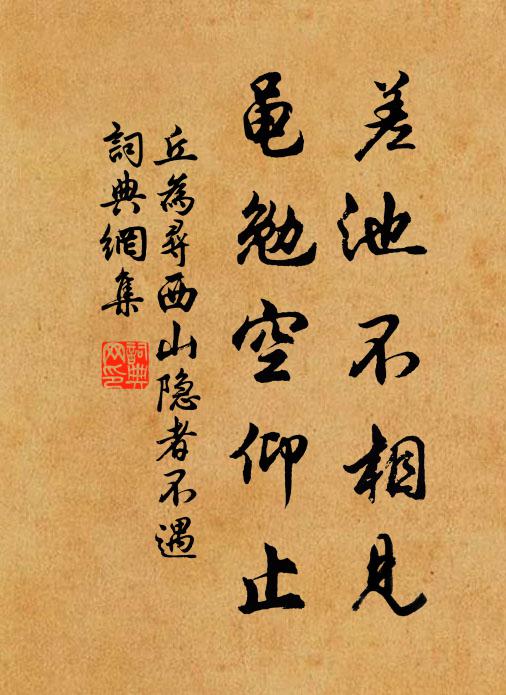 差池不相見
黽勉空仰止
丘為尋西山隐者不遇
詞典網集
詞典网印